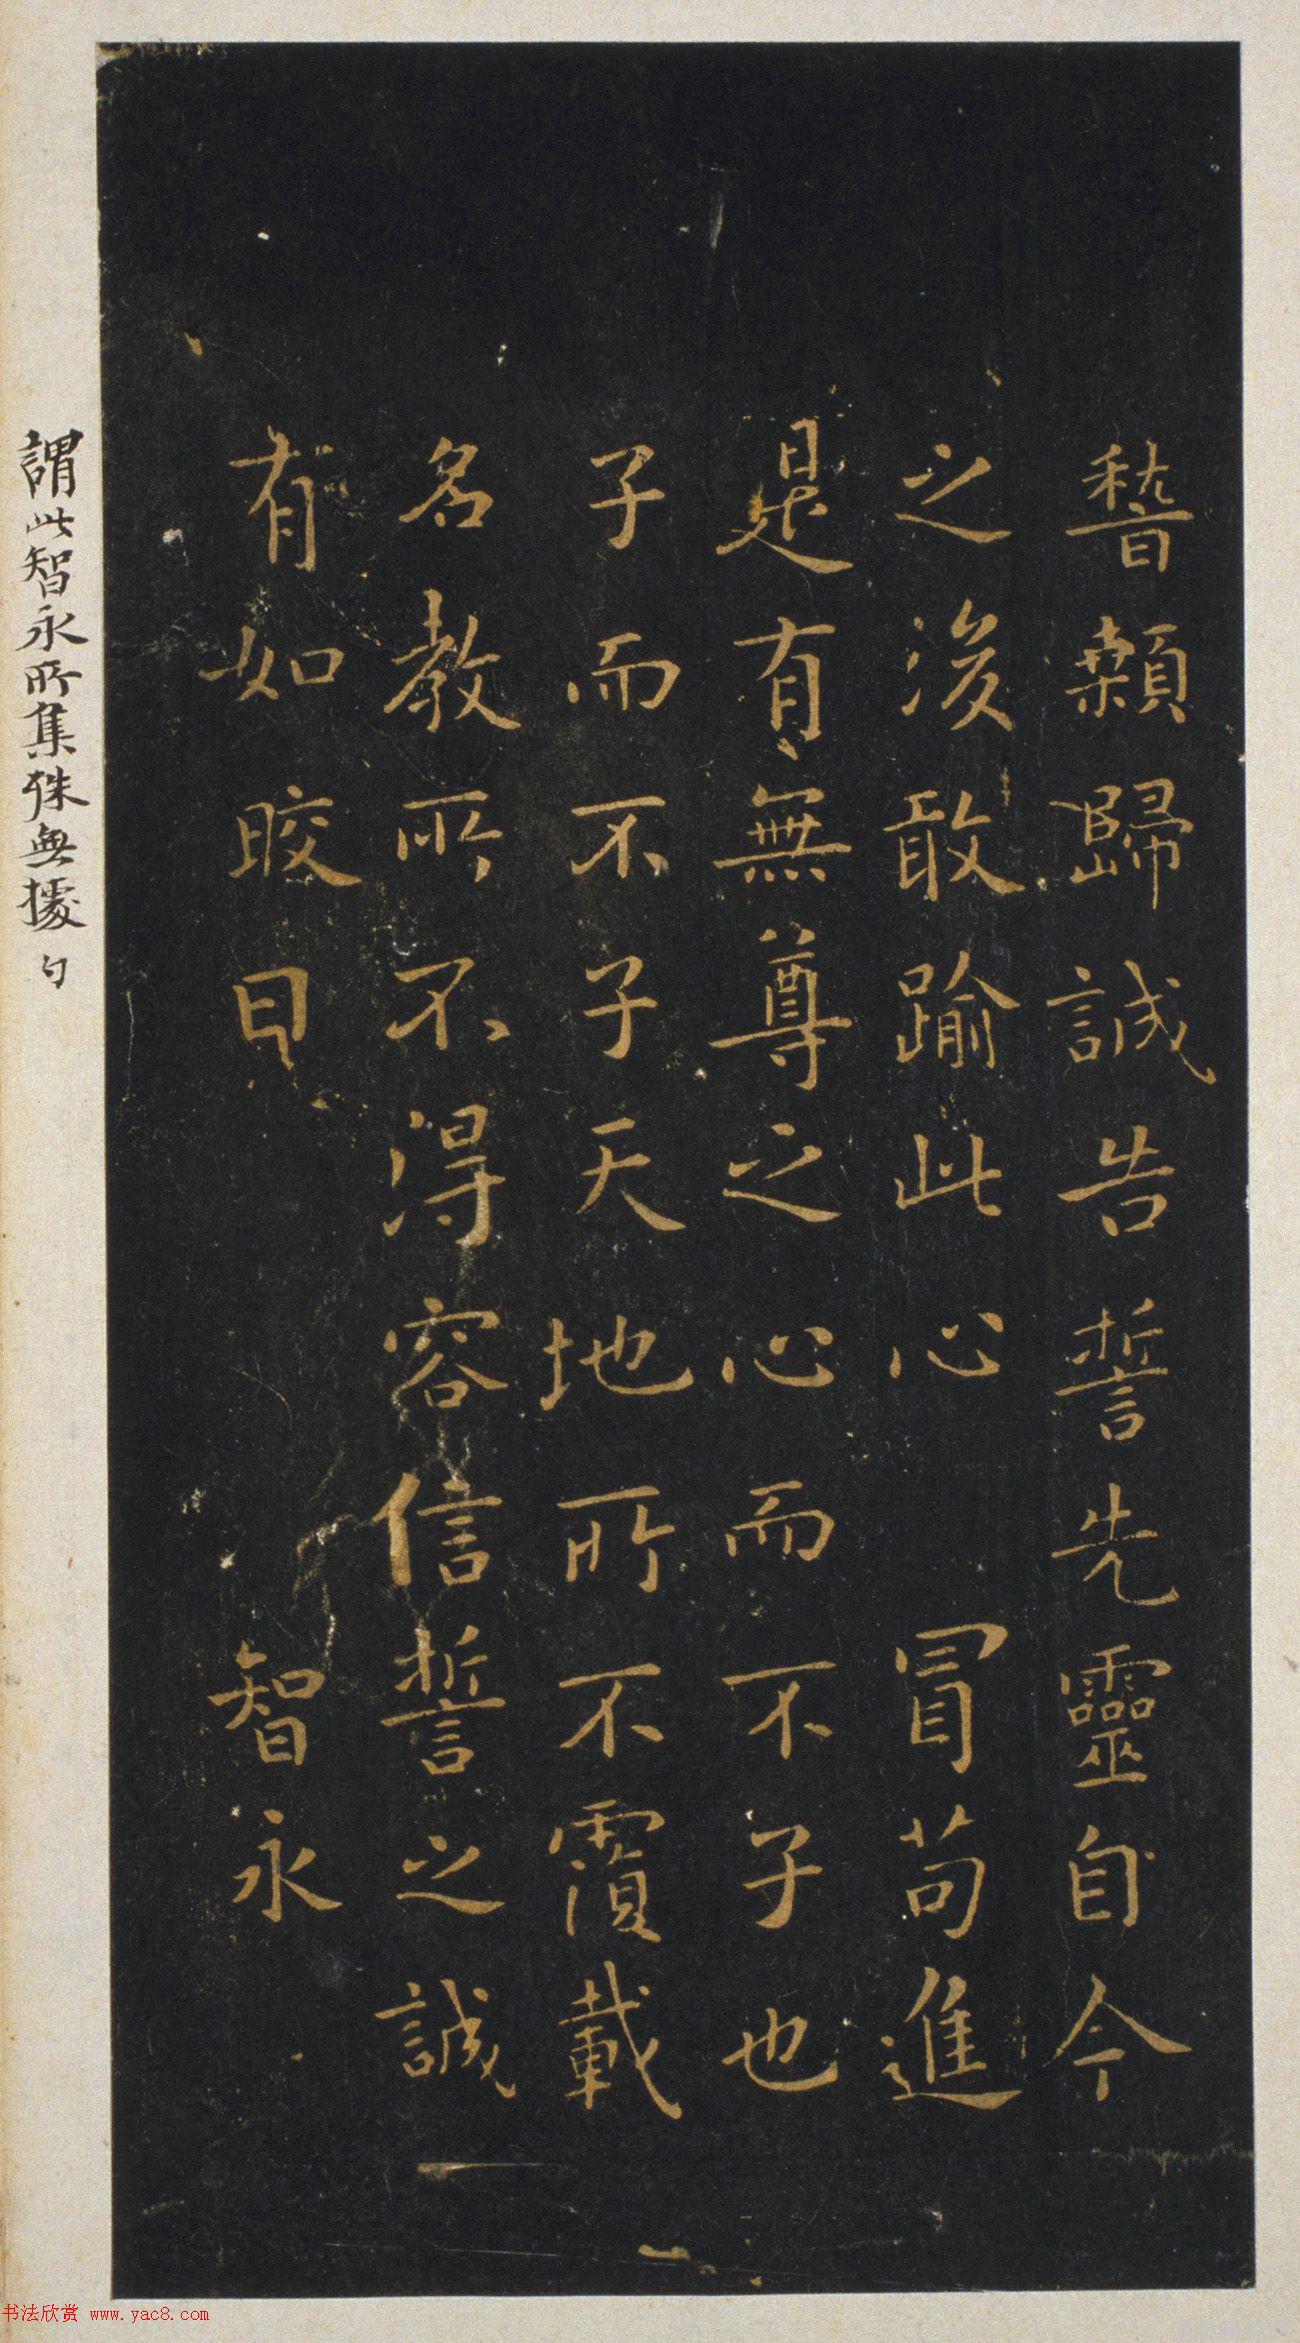 稽顙歸誠告誓先靈自今
之後敢踰此心 冒苟進
是有無尊之心而不子也
子而不子天地所不覆載
名教所不得容信誓之誠
有如皎日 智永
謂此智永所集殊無據
书法欣赏 www.yac8.com